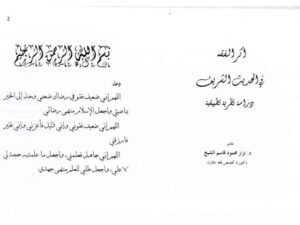 أثر الفقه
في الحديث الشريف
دراسة نظرية تطبيقية
بقلم
د. نزار محمود قاسم الشيخ
دكتوراه تخصص فقه مقارن
2
بسم الله الرحمن الرحيم
وبعد
اللهم إني ضعيف فقوّ في رضاك ضعفي وخذ إلى الخير
بناصيتي واجعل الإسلام منتهى رضائي
اللهم إني ضعيف فقوني وإني ذليل فأعزني وإني فقير
فارزقني
اللهم إني جاهل فعلمني، واجعل ما علمتنيه حجة لي
لا علي، واجعل طلبي للعلم منتهى جهدي